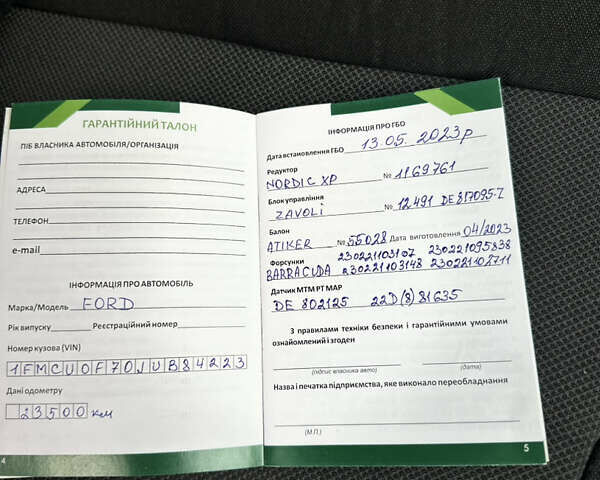 ГАРАНТІЙНИЙ ТАЛОН
ПІБ ВЛАСНИКА АВТОМОБІЛЯ/ОРГАНІЗАЦІЯ
АДРЕСА
ТЕЛЕФОН
e-mail
ІНФОРМАЦІЯ ПРО АВТОМОБІЛЬ
Марка/Модель FORD
Рік випуску Реєстраційний номер
Номер кузова (VIN)
1FMCU0F70JUB84223
Дані одометру
23500 км
4
ІНФОРМАЦІЯ ПРО ГБО
Дата встановлення ГБО 13.05.2023р
Редуктор
NORDIC XP № 1169761
Блок управління
ZAVOLI № 12491 DE817095-Z
Балон
ATIKER № 55028 Дата виготовлення 04/2023
Форсунки 230221103107 230221095838
BARRACUDA 230221103148 230221102711
Датчик МТМ РТ МАР
DE 802125 22D(8)81635
З правилами техніки безпеки і гарантійними умовами
ознайомлений і згоден
(підпис власника авто) (дата)
Назва і печатка підприємства, яке виконало переобладнання
(М.П.)
5